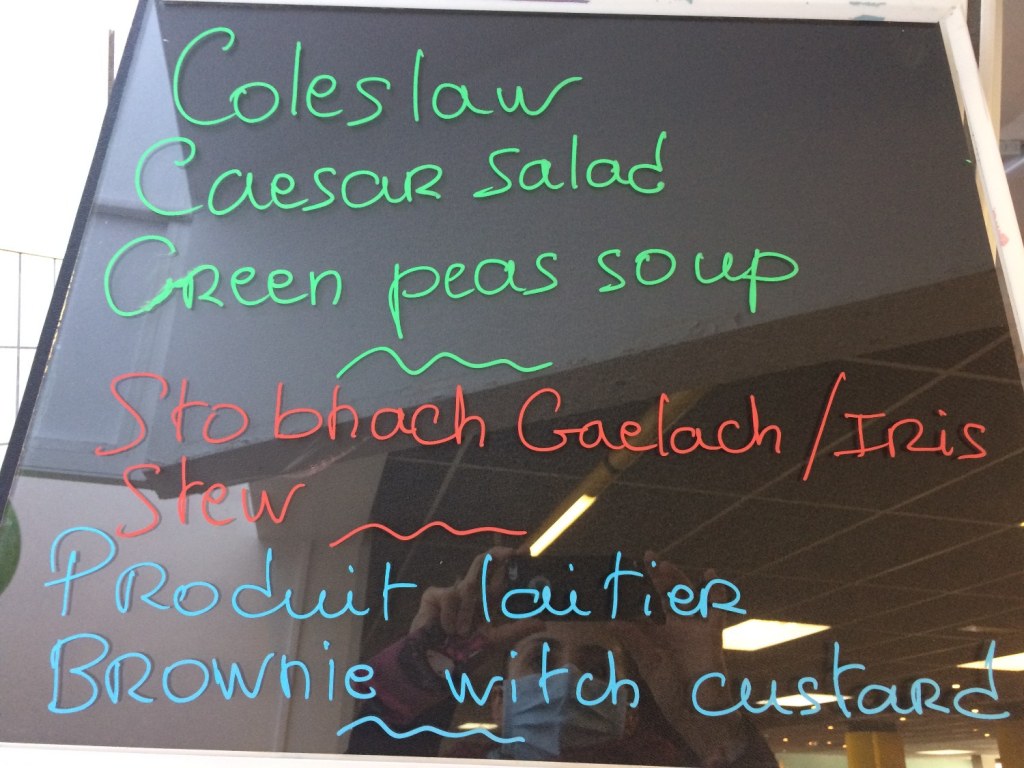 Coleslaw
Caesar salad
Green peas soup
Stobhach Gaelach / Iris
Stew
Produit laitier
Brownie witch custard